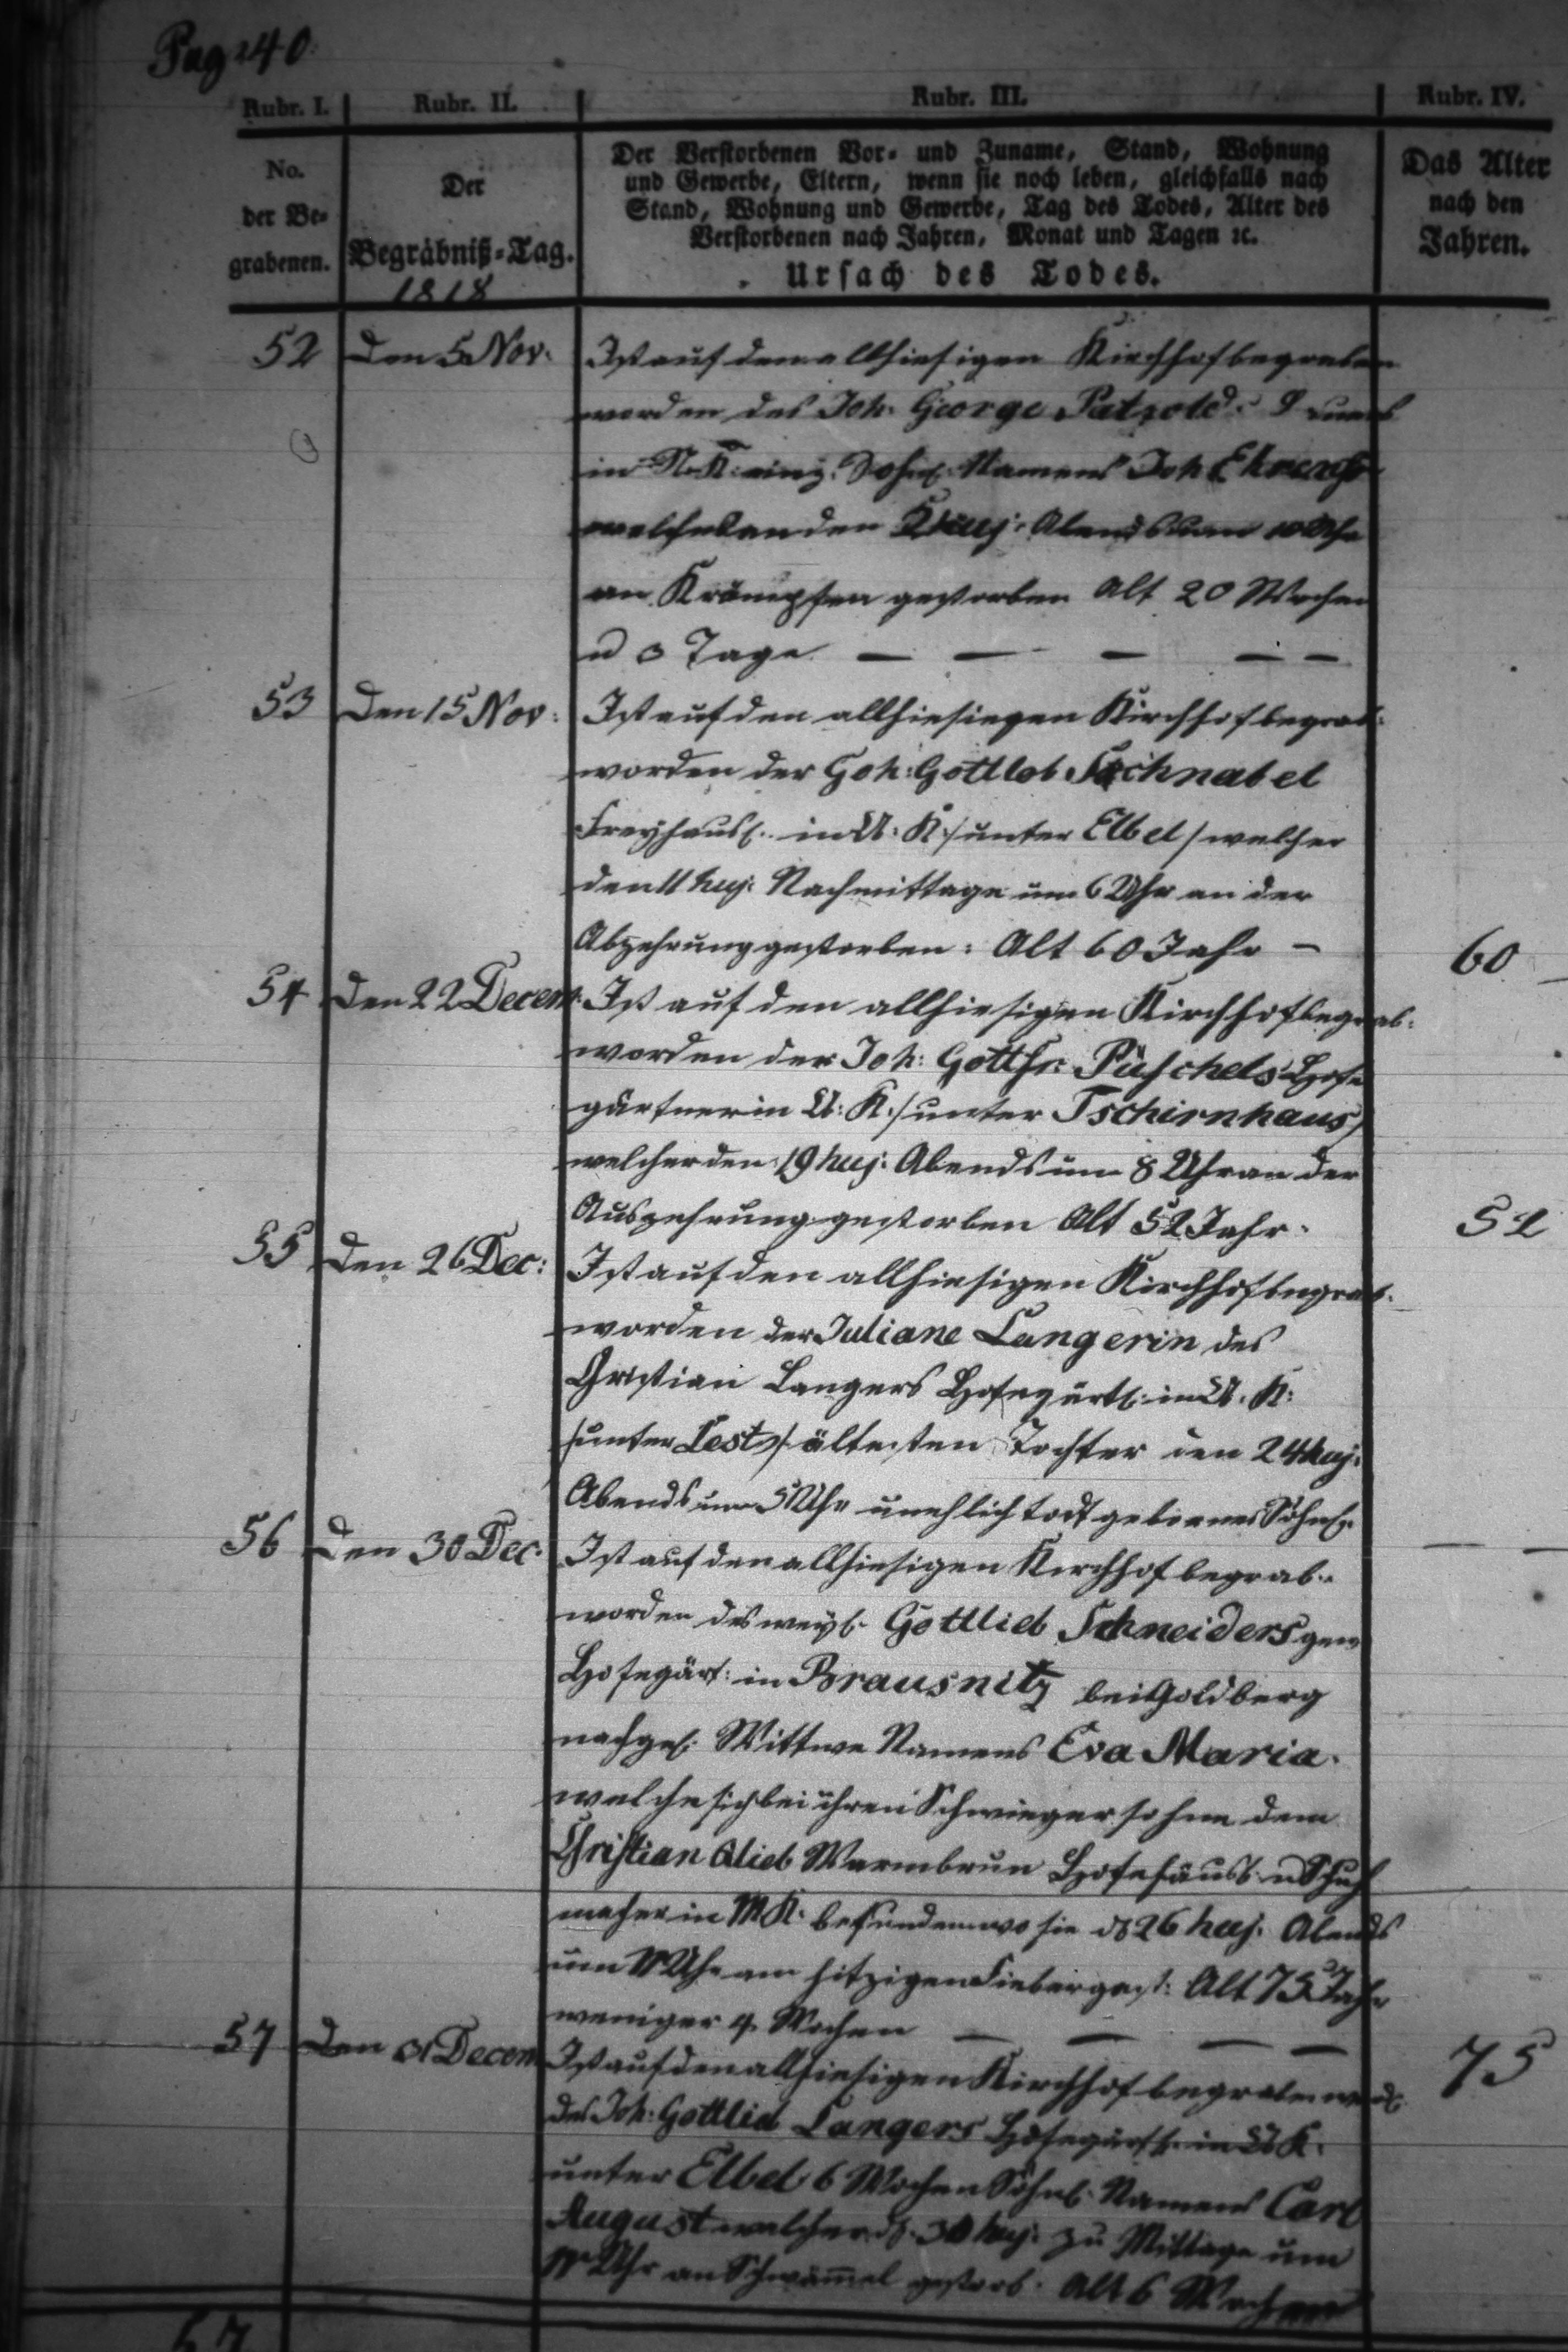 Pag 240.
Rubr. I. Rubr. II. Rubr. III. Rubr. IV.
No. der Be- grabenen.
Der Begräbniß-Tag.
1818
Der Verstorbenen Vor- und Zuname, Stand, Wohnung
und Gewerbe, Eltern, wenn sie noch leben, gleichfalls nach
Stand, Wohnung und Gewerbe, Tag des Todes, Alter des
Verstorbenen nach Jahren, Monat und Tagen ꝛc.
Ursach des Todes.
Das Alter
nach den
Jahren.
52 Den 5 Nov: Ist auf dem allhiesigen Kirchhof begraben
worden des Joh: George Patzold
in N. K. einz. Söhnl. Namens Joh Ehrenfr
welches den huj: Abends um 10 Uhr
an Krämpfen gestorben Alt 20 Wochen
u 3 Tage. — — — — —
53 Den 15 Nov: Ist auf den allhiesiegen Kirchhof begrab:
worden der Joh: Gottlob Schnabel
Freyhäusl. in U: K: /: unter Elbel / welcher
den 11 huj: Nachmittage um 6 Uhr an der
Abzehrung gestorben: Alt 60 Jahr — 60
54 Den 22 Decem: Ist auf den allhiesigen Kirchhof begrab:
worden der Joh: Gottfr: Püschels Hofe
gärtner in U: K: /: unter Tschirnhaus /
welcher den 19 huj: Abends um 8 Uhr an der
Auszehrung gestorben Alt 52 Jahr. 52
55 Den 26 Dec: Ist auf den allhiesigen Kirchhof begrab.
worden der Juliane Langerin des
Christian Langers Hofegärtl: in U. K:
/ unter Lest / ältesten Tochter den 24 huj:
Abends um 5 Uhr unehlich todt gebornes Söhnl. —
56 Den 30 Dec: Ist auf den allhiesigen Kirchhof begrab..
worden des weyl. Gottlieb Schneiders gew
Hofegärt: in Prausnitz bei Goldberg
nachgel: Wittwe Namens Eva Maria.
welche sich bei ihren Schwiegersohne dem
Christian Glieb Warmbrun Hofehäusl: u Schuh
macher in M K. befunden wo sie d 26 huj: Abends
um 11 Uhr am hitzigen Fieber gest: Alt 75 Jahr
weniger 4 Wochen — — — — 75
57 Den 31 Decem Ist auf den allhiesigen Kirchhof begraben word
des Joh: Gottlieb Langers Hofegärtl: in U K.
unter Elbel 6 Wochen Söhnl: Namens Carl
August welcher d. 30 huj: zu Mittage um
Uhr an Schwämmel gestorb. Alt 6 Wochen
57